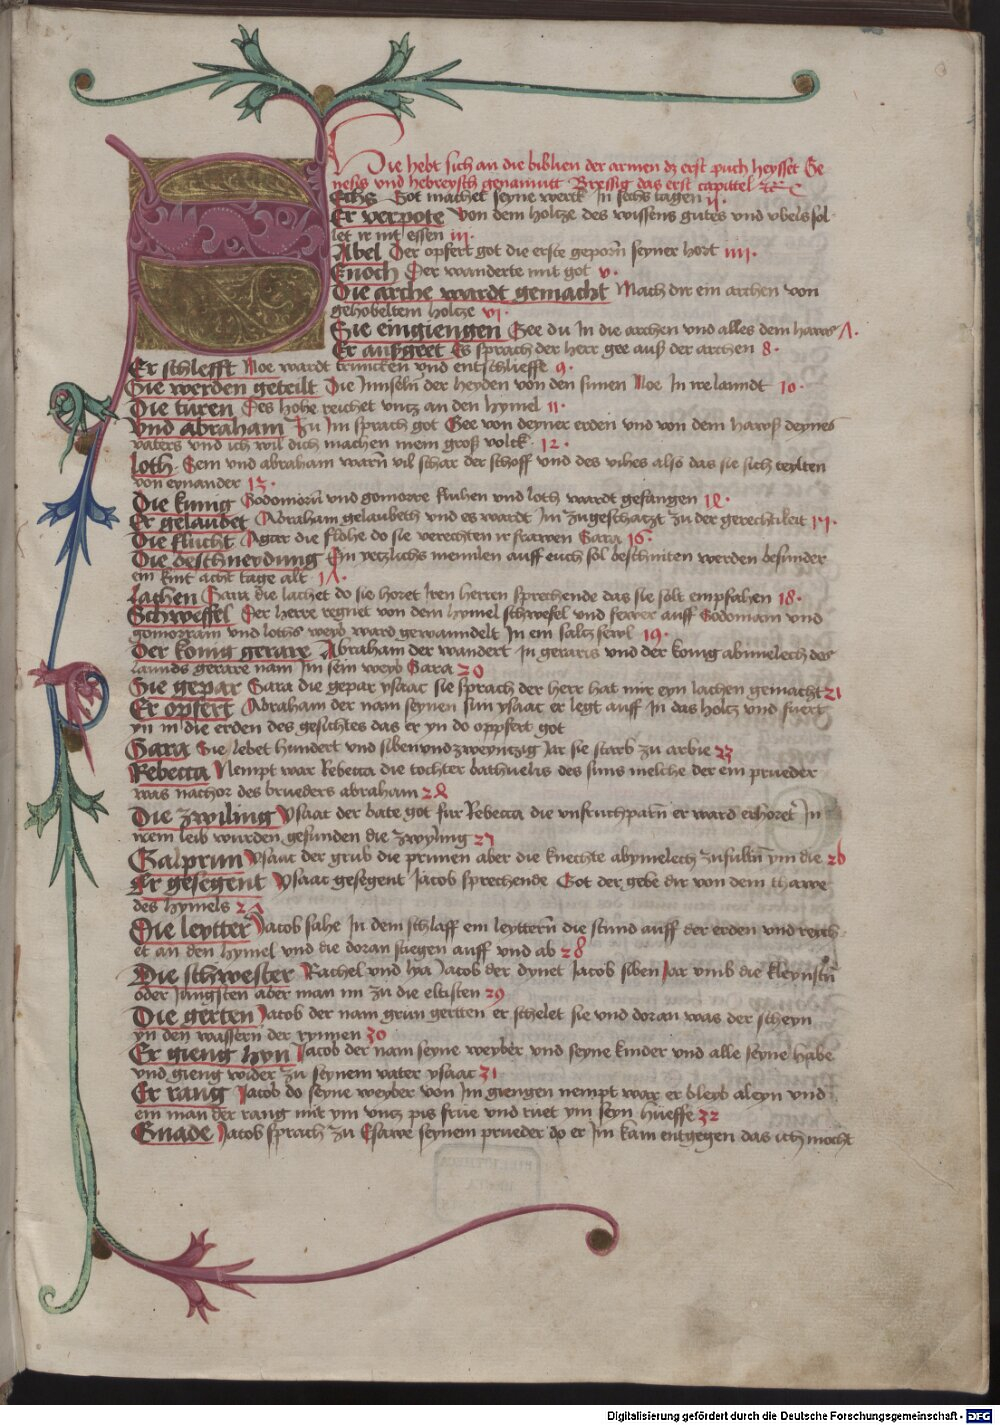 Hie hebt sich an die biblien der armen dz erst puch heysset Ge
nesis vnd hebreysch genanntt Bresitig das erst capittel
Sechs Got machet seyne werck In sechs tagen ij·
Er verpote Von dem holtze des wissens gutes vnd vbels sol
let ir nit essen iij·
Abel Der opfert got die erste geporñ seyner hort iiij·
Enoch Der wanderte mit got v·
Die arche wardt gemacht Mach dir ein archen von
gehobeltem holtze vi·
Sie eingiengen Gee du In die archen vnd alles dein hawß Λ·
Er außgeet Es sprach der herr gee auß der archen 8·
Er schlefft Noe wardt truncken vnd entschlieffe 9·
Sie werden geteilt Die Innseln der heyden von den sunen Noe In ire lanndt 10·
Die turen Des hohe reichet vntz an den hymel 11·
Vnd abraham Zu Im sprach got Gee von deyner erden vnd von dem hawß deynes
vaters vnd ich wil dich machen inein groß volck· 12·
Loth· Sem vnd abraham warñ vil schar der schoff vnd des vihes also das sie sich teylten
von eynander 13·
Die kunig Sodomorũ vnd gomorre fluhen vnd loth wardt gefangen 14·
Er gelaubet Abraham gelaubeth vnd es wardt Im zugeschatzt zu der gerechtikeit 15·
Die flucht Agar die flohe do sie verechten ir frawen Sara 16·
Die beschneydung Ein yetzlichs mennlen auff euch sol beschniten werden besunder
ein kint acht tage alt 1Λ·
Lachen Sara die lachet do sie horet Iren herren sprechende das sie solt empfahen 18·
Schweffel Der herre regnet von dem hymel schwefel vnd fewer auff Sodomam vnd
gomorram vnd loths weyb ward gewanndelt In ein saltz sewl 19·
Der konig gerare Abraham der wandert In geraris vnd der konig abimelech des
lannds gerare nam Im sein weyb Sara 20
Sie gepar Sara die gepar ysaac sie sprach der herr hat mir eyn lachen gemacht 21
Er opfert Abraham der nam seynen sun ysaac er legt auff In das holtz vnd fuert
yn in die erden des gesichtes das er yn do oppfert got
Sara Sie lebet hundert vnd sibenundzweyntzig Iar sie starb zu arbie 23
Rebecca Nempt war Rebecca die tochter bathuelis des suns melche der ein prueder
was nachor des brueders abraham 24
Die zwiling Ysaac der bate got fur Rebecca die vnfruchparñ er ward erhoret In
irem leib wurden gefunden die zwyling 25
Galprun Ysaac der grub die prunnen aber die knechte abymelech zufultñ ym die 26
Er gesegent Ysaac gesegent Jacob sprechende Got der gebe dir von dem thawe
des hymels 2Λ
Die leytter Jacob sahe In dem schlaff ein leytterñ die stund auff der erden vnd reych
et an den hymel vnd die doran stiegen auff vnd ab 28
Die schwester Rachel vnd lia Jacob der dynet Jacob siben Jar vmb die kleynstñ
oder Jungsten aber man im zu die eltisten 29
Die gerten Jacob der nam grun gertten er schelet sie vnd doran was der scheyn
yn den wasserñ der rynnen 30
Er gieng hyn Jacob der nam seyne weyber vnd seyne kinder vnd alle seyne habe
vnd gieng wider zu seynem vater ysaac 31
Er rang Jacob do seyne weyber von Im giengen nempt war er bleyb aleyn vnd
ein man der rang mit ym vntz pis frue vnd ruet ym seyn hueffe 32
Gnade Jacob sprach zu Esawe seynem prueder do er Im kam entgegen das ich mocht
Digitalisierung gefördert durch die Deutsche Forschungsgemeinschaft - DFG